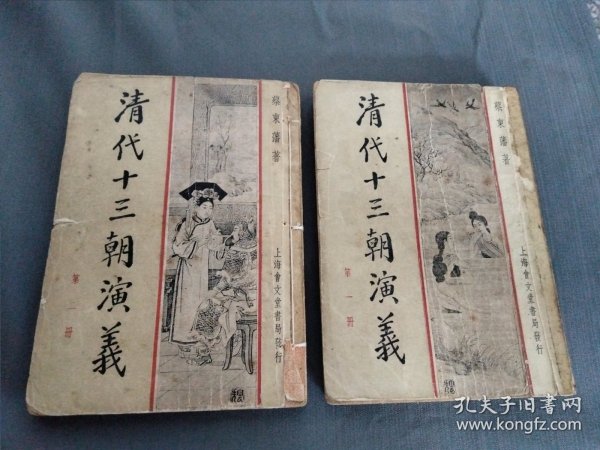 清代十三朝演義
第二冊
蔡東藩著
上海會文堂書局發行
清代十三朝演義
第一冊
蔡東藩著
上海會文堂書局發行
孔夫子旧书网
www.kongfz.com